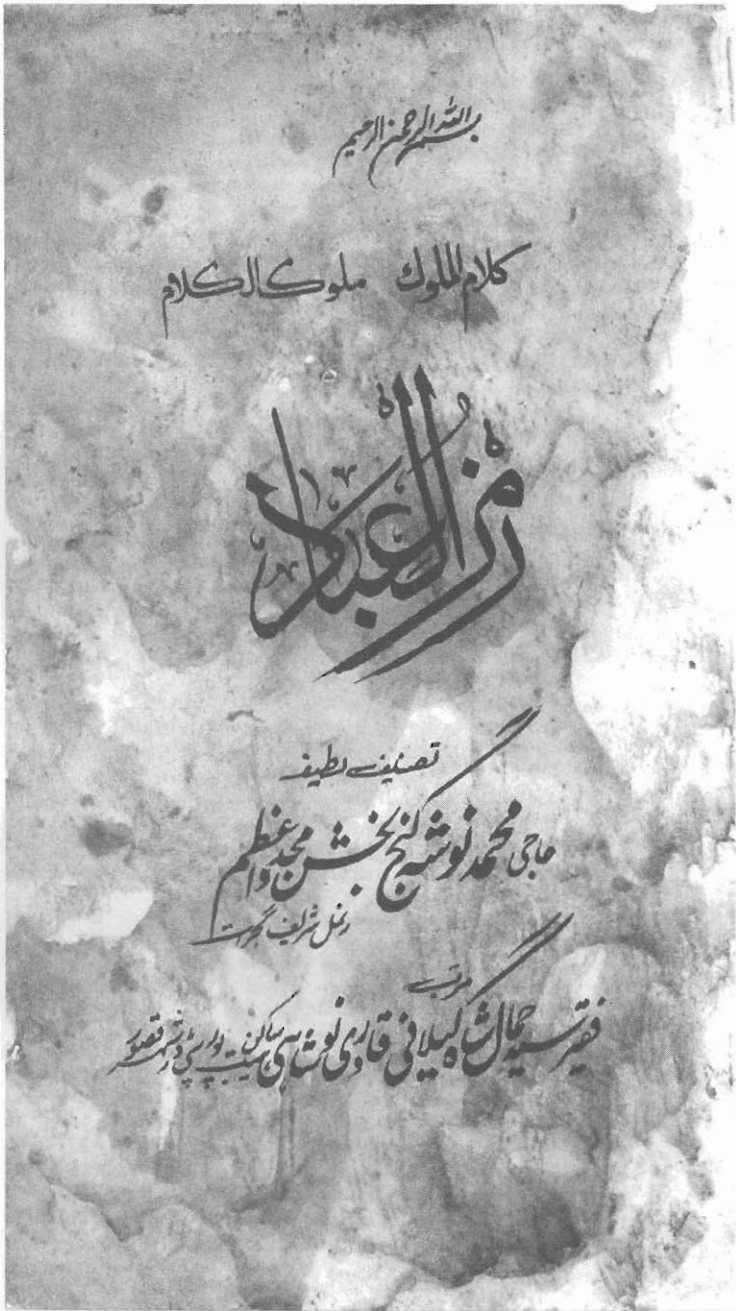 بسم اللہ الرحمن الرحیم
کلام الملوک ملوک الکلام
رمز العباد
تصنیف لطیف
حاجی محمد نوشہ گنج بخش مجدد اعظم
رنمل شریف گجرات
مرتب
فقیر سید جمال شاہ گیلانی قادری نوشاہی ساکن قصور